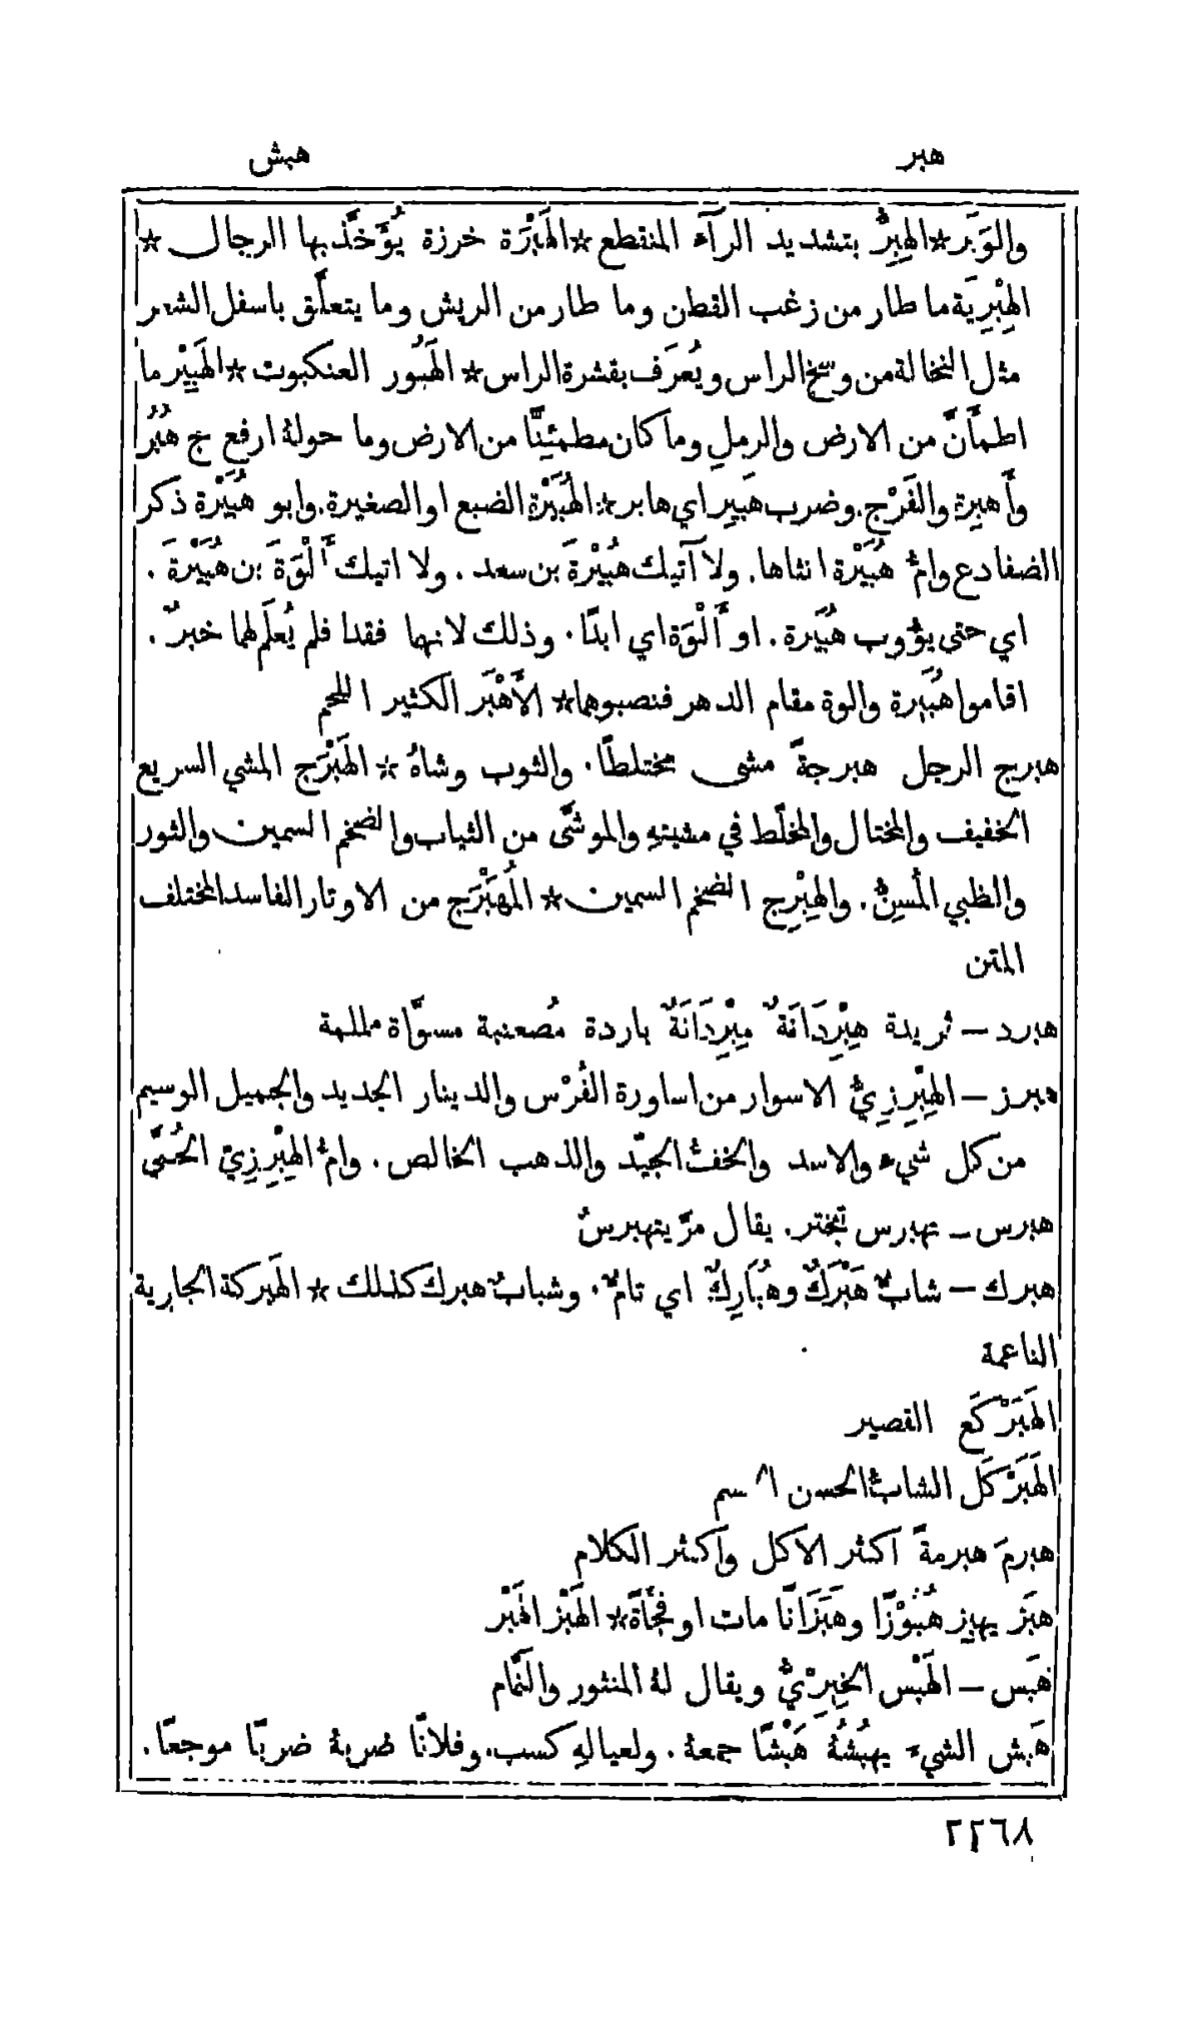 هبر
هبش
والوَبَر * الهِبِرُّ بتشديد الرآء المنقطع * الهَبْرَة خرزة يُؤَخَّذ بها الرجال *
الهِبْرِيَة ما طار من زغب القطن وما طار من الريش وما يتعلَّق باسفل الشعر
مثل النخالة من وسخ الراس ويُعرَف بقشرة الراس * الهَبُّور العنكبوت * الهَبِيْر ما
اطمأَنَّ من الارض والرمل وما كان مطمئِنًّا من الارض وما حولهُ ارفع ج هُبُرٌ
وأَهبِرة والفَرْج. وضرب هَبِير اي هابر * الهُبَيْرة الضبع او الصغيرة. وابو هُبَيْرة ذكر
الضفادع وامُّ هُبَيْرة انثاها. ولا آتيك هُبَيْرةَ بن سعد. ولا اتيك أَلْوَةَ بن هُبَيْرَةَ.
اي حتى يؤُوب هُبَيرة. او أَلْوَة اي ابدًا. وذلك لانهما فقدا فلم يُعلَم لهما خبرٌ.
اقاموا هُبَيرة والوة مقام الدهر فنصبوهما * الأَهْبَر الكثير اللحم
هبرج الرجل هبرجةً مشى مختلطًا. والثوب وشاهُ * الهَبْرَج المشي السريع
الخفيف والمختال والمخلّط في مشيتهِ والموشَّى من الثياب والضخم السمين والثور
والظبي المُسِنُّ. والهِبْرِج الضخم السمين * المُهَبْرَج من الاوتار الفاسد المختلف
المتن
هبرد — ثريدة هِبْرِدَانَةٌ مِبْرِدَانَةٌ باردة مُصعنبة مسوَّاة ململمة
هبرز — الهِبْرِزِيُّ الاسوار من اساورة الفُرْس والدينار الجديد والجميل الوسيم
من كل شيءٍ والاسد والخفُّ الجيّد والذهب الخالص. وامُّ الهِبْرِزِيّ الحُمَّى
هبرس — تهبرس تبختر. يقال مرَّ يتهبرسُ
هبرك — شابٌّ هَبْرَكٌ وهُبَارِكٌ اي تامٌّ. وشبابٌ هبرك كذلك * الهَبركة الجارية
الناعمة
الهَبَرْكَع القصير
الهَبَرْكَل الشابُّ الحسن الجسم
هبرمَ هبرمةً اكثر الاكل واكثر الكلام
هبَز يهبِز هُبُوْزًا وهَبَزَانًا مات او فُجْأَةً * الهَبْز الهَبْر
هَبَس — الهَبْس الخِيرْيُّ ويقال لهُ المنثور والنَّمام
هَبَش الشيءَ يهبُشُهُ هَبْشًا جمعهُ. ولعيالهِ كسب. وفلانًا ضربهُ ضربًا موجعًا.
٢٢٦٨